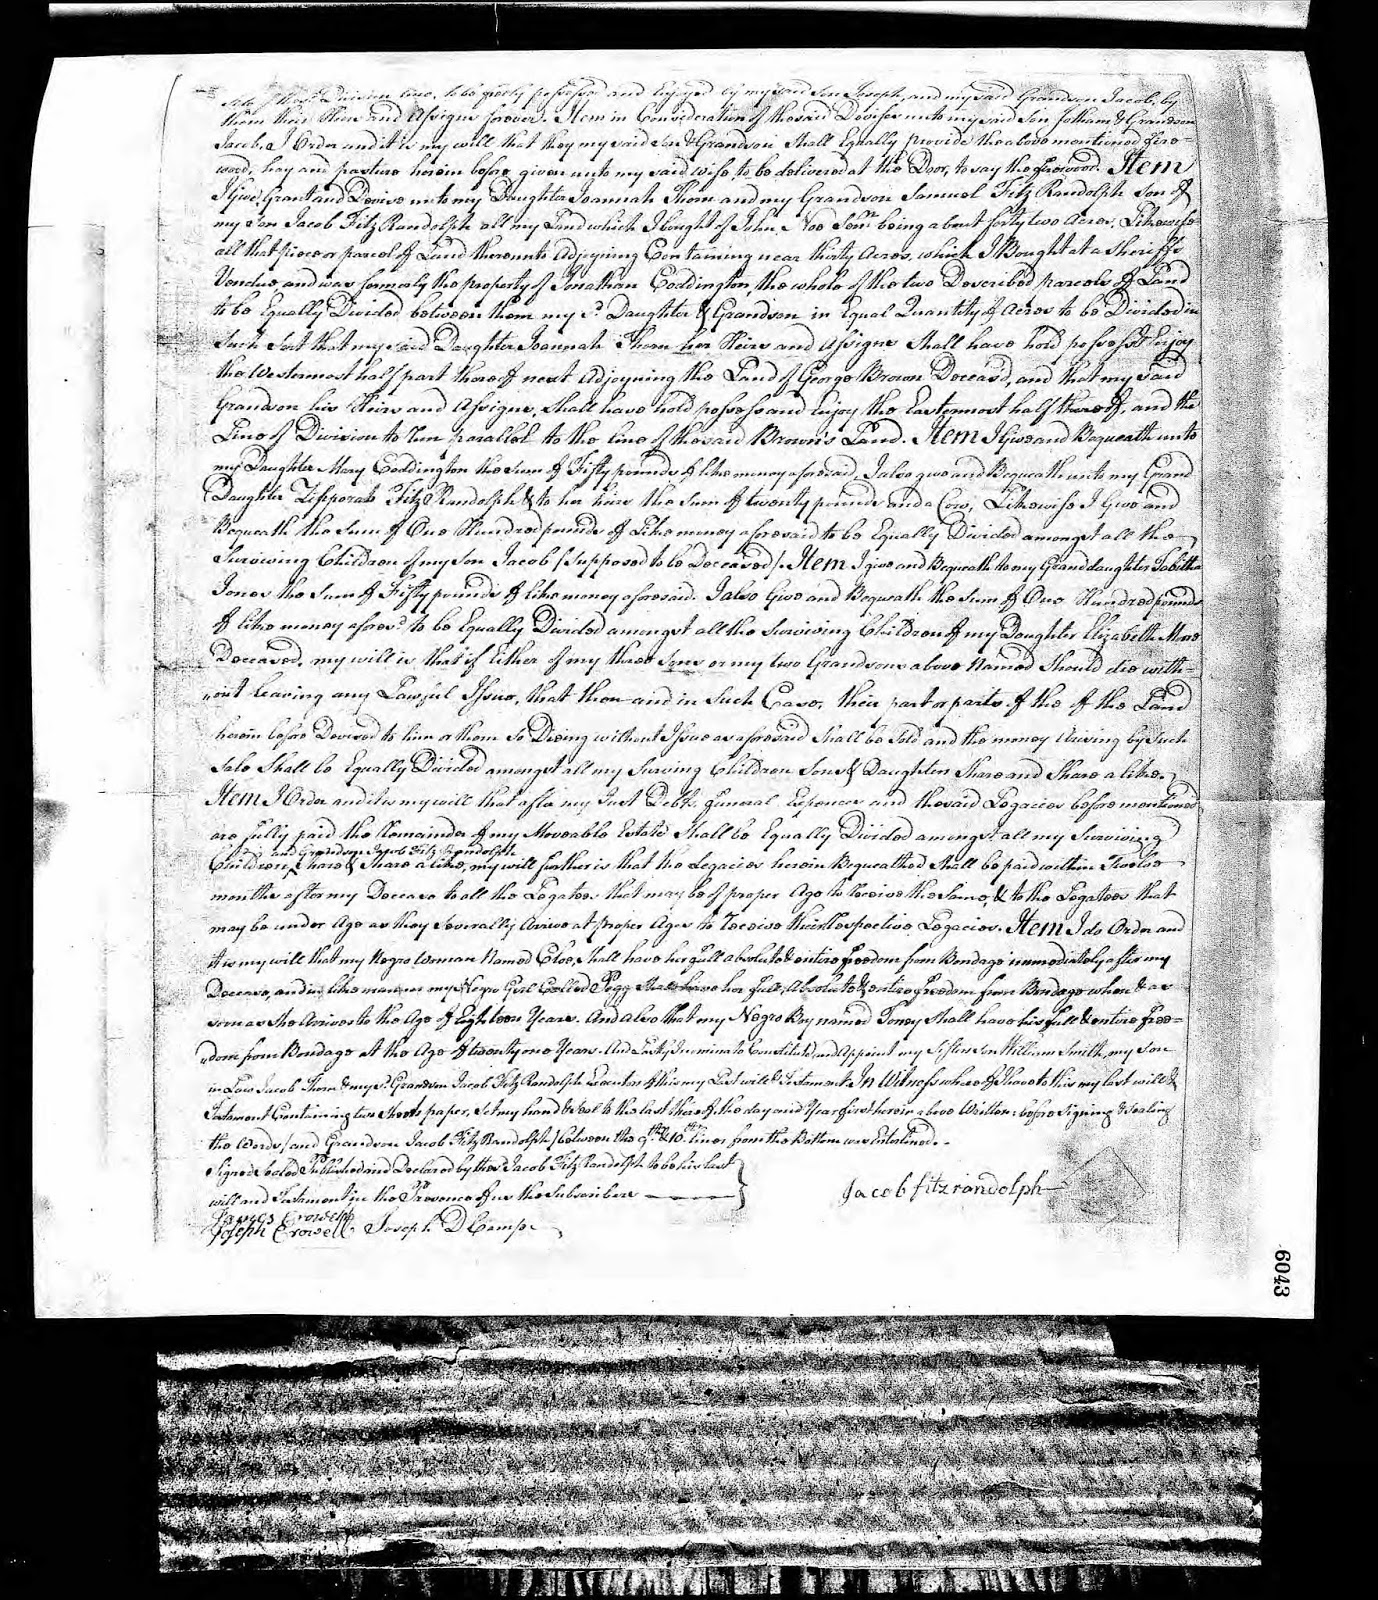 side of that Division line, to be freely possessed and enjoyed by my said son Joseph, and my said Grandson Jacob, by
them their Heirs and Assigns forever. Item in Consideration of the said Devises unto my said Son Jotham & Grandson
Jacob, I Order and it is my will that they my said Son & Grandson Shall Equally provide the above mentioned fire-
wood, hay and pasture herein before given unto my said wife, to be delivered at the Door, to say the firewood. Item
I Give Grant and Devise unto my Daughter Joannah Thorn and my Grandson Samuel Fitz Randolph Son of
my Son Jacob Fitz Randolph all my Land which I bought of John Noe Senr. being about forty two Acres. Likewise
all that piece or parcel of Land thereunto Adjoyning Containing near thirty Acres, which I Bought at a Sheriffs
Vendue, and was formerly the property of Jonathan Coddington, the whole of the two Described parcels of Land
to be Equally Divided between them my sd. Daughter & Grandson in Equal Quantity of Acres to be Divided in
Such Sort that my said Daughter Joannah Thorn her Heirs and Assigns Shall have hold possess & Enjoy
the Westermost half part thereof next Adjoyning the Land of George Brown Deceas'd, and that my said
Grandson his Heirs and Assigns, Shall have hold possess and Enjoy the Eastermost half thereof, and the
Line of Division to Run parallel to the line of the said Brown's Land. Item I Give and Bequeath unto
my Daughter Mary Coddington the Sum of Fifty pounds of like money aforesaid, I also give and Bequeath unto my Grand
Daughter Zipporah Fitz Randolph & to her heirs the Sum of twenty pounds and a Cow, Likewise I Give and
Bequeath the Sum of One Hundred pounds of Like money aforesaid to be Equally Divided amongst all the
Surviving Children of my son Jacob (Supposed to be Deceased). Item I give and Bequeath to my Granddaughter Tabitha
Jones the Sum of Fifty pounds of like money aforesaid. I also Give and Bequeath the Sum of One Hundred pounds
of like money aforesd. to be Equally Divided amongst all the Surviving Children of my Daughter Elizabeth More
Deceased. my will is that if Either of my three Sons or my two Grandsons above Named Should die with-
out leaving any Lawful Issue, that then and in Such Case, their part or parts of the of the Land
herein before Devised to him or them So Dieing without Issue as aforesaid Shall be Sold and the money Arising by Such
Sale Shall be Equally Divided amongst all my Surviving Children Sons & Daughters Share and Share alike.
Item I Order and it is my will that after my Just Debts, funeral Expences and the said Legacies before mentioned
are fully paid the Remainder of my Moveable Estate Shall be Equally Divided amongst all my Surviving
and Grandson Jacob Fitz Randolph
Children, Share & Share alike, my will further is that the Legacies herein Bequeathed Shall be paid within Twelve
months after my Decease to all the Legatees that may be of proper Age to Receive the Same, & to the Legatees that
may be under Age as they Severally Arrive at proper Ages to Receive their Respective Legacies. Item I do Order and
it is my will that my Negro Woman Named Cloe, Shall have her full absolute & entire freedom from Bondage immediately after my
Decease, and in like manner my Negro Girl Called Pegg Shall have her full, Absolute & entire freedom from Bondage when & as
soon as she Arrives to the Age of Eighteen Years. And also that my Negro Boy named Toney Shall have his full & entire free-
dom from Bondage at the Age of twenty one Years. And Lastly I nominate Constitute and Appoint my Sisters Son William Smith, my son
in Law Jacob Thorn & my sd. Grandson Jacob Fitz Randolph Executors of this my Last will & Testament. In Witness whereof I have to this my last will &
Testament Containing two Sheets paper, Set my hand & Seal to the last thereof the day and Year first herein above Written: before Signing & Sealing
the Words (and Grandson Jacob Fitz Randolph) between the 9th & 10th lines from the Bottom was Enterlined.
Signed Sealed Published and Declared by the sd Jacob Fitz Randolph to be his last
will and Testament in the Presence of us the Subscribers
Jacob fitz randolph
James Crowell
Joseph Crowell Joseph D Camp
6043